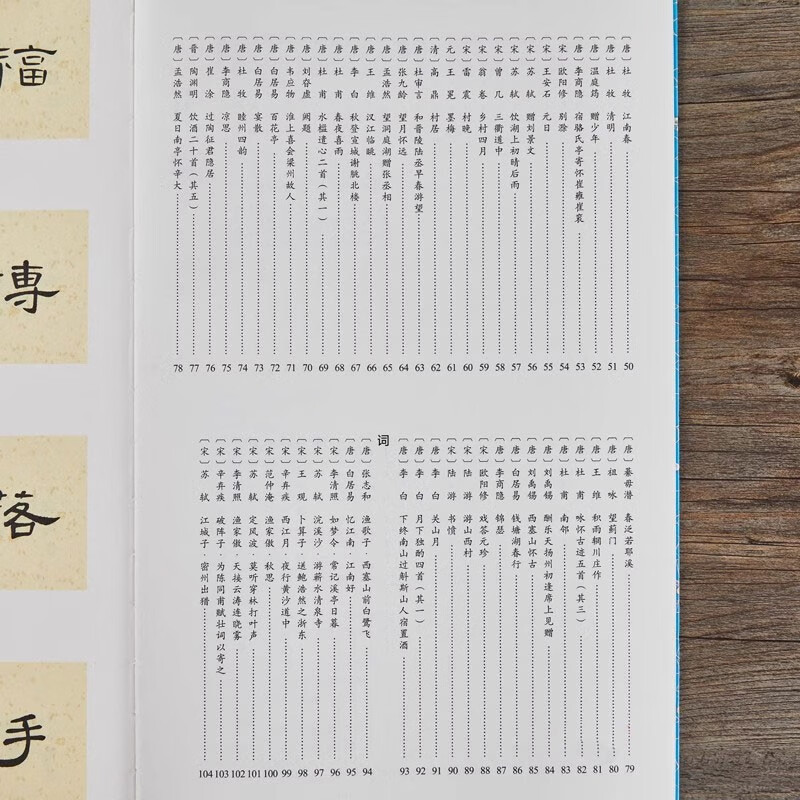 福
專
落
手
〔唐〕杜 牧 江南春 50
〔唐〕杜 牧 清明 51
〔唐〕温庭筠 赠少年 52
〔唐〕李商隐 宿骆氏亭寄怀崔雍崔衮 53
〔宋〕欧阳修 别滁 54
〔宋〕王安石 元日 55
〔宋〕苏 轼 赠刘景文 56
〔宋〕苏 轼 饮湖上初晴后雨 57
〔宋〕曾 几 三衢道中 58
〔宋〕翁 卷 乡村四月 59
〔宋〕雷 震 村晚 60
〔元〕王 冕 墨梅 61
〔清〕高 鼎 村居 62
〔唐〕杜审言 和晋陵陆丞早春游望 63
〔唐〕张九龄 望月怀远 64
〔唐〕孟浩然 望洞庭湖赠张丞相 65
〔唐〕王 维 汉江临眺 66
〔唐〕李 白 秋登宣城谢朓北楼 67
〔唐〕杜 甫 春夜喜雨 68
〔唐〕杜 甫 水槛遣心二首（其一） 69
〔唐〕刘昚虚 阙题 70
〔唐〕韦应物 淮上喜会梁州故人 71
〔唐〕白居易 百花亭 72
〔唐〕白居易 宴散 73
〔唐〕杜 牧 睦州四韵 74
〔唐〕李商隐 凉思 75
〔唐〕崔 涂 过陶征君隐居 76
〔晋〕陶渊明 饮酒二十首（其五） 77
〔唐〕孟浩然 夏日南亭怀辛大 78
〔唐〕綦毋潜 春泛若耶溪 79
〔唐〕祖 咏 望蓟门 80
〔唐〕王 维 积雨辋川庄作 81
〔唐〕杜 甫 咏怀古迹五首（其三） 82
〔唐〕杜 甫 南邻 83
〔唐〕刘禹锡 酬乐天扬州初逢席上见赠 84
〔唐〕刘禹锡 西塞山怀古 85
〔唐〕白居易 钱塘湖春行 86
〔唐〕李商隐 锦瑟 87
〔宋〕欧阳修 戏答元珍 88
〔宋〕陆 游 游山西村 89
〔宋〕陆 游 书愤 90
〔唐〕李 白 关山月 91
〔唐〕李 白 月下独酌四首（其一） 92
〔唐〕李 白 下终南山过斛斯山人宿置酒 93
词
〔唐〕张志和 渔歌子·西塞山前白鹭飞 94
〔唐〕白居易 忆江南·江南好 95
〔宋〕李清照 如梦令·常记溪亭日暮 96
〔宋〕苏 轼 浣溪沙·游蕲水清泉寺 97
〔宋〕王 观 卜算子·送鲍浩然之浙东 98
〔宋〕辛弃疾 西江月·夜行黄沙道中 99
〔宋〕范仲淹 渔家傲·秋思 100
〔宋〕苏 轼 定风波·莫听穿林打叶声 101
〔宋〕李清照 渔家傲·天接云涛连晓雾 102
〔宋〕辛弃疾 破阵子·为陈同甫赋壮词以寄之 103
〔宋〕苏 轼 江城子·密州出猎 104